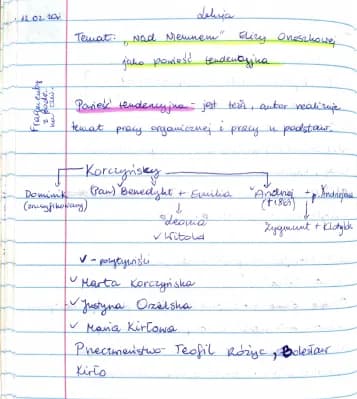 12.02.20
Lekcja
Temat: "Nad Niemnem" Elizy Orzeszkowej
jako powieść tendencyjna
Fragmenty
Powieść tendencyjna - jest teza, autor realizuje
temat pracy organicznej i pracy u podstaw.
Korczyńscy
Dominik (Pan) Benedykt + Emilia Andrzej + p. Andrzejowa
(zrusyfikowany) (†1863)
"Leonia"
✓ Witold Zygmunt + Klotylda
✓ - pozytywiści
✓ Marta Korczyńska
✓ Justyna Orzelska
✓ Maria Kirłowa
Pneczmeństwo - Teofil Różyc, Bolesław
Kirło